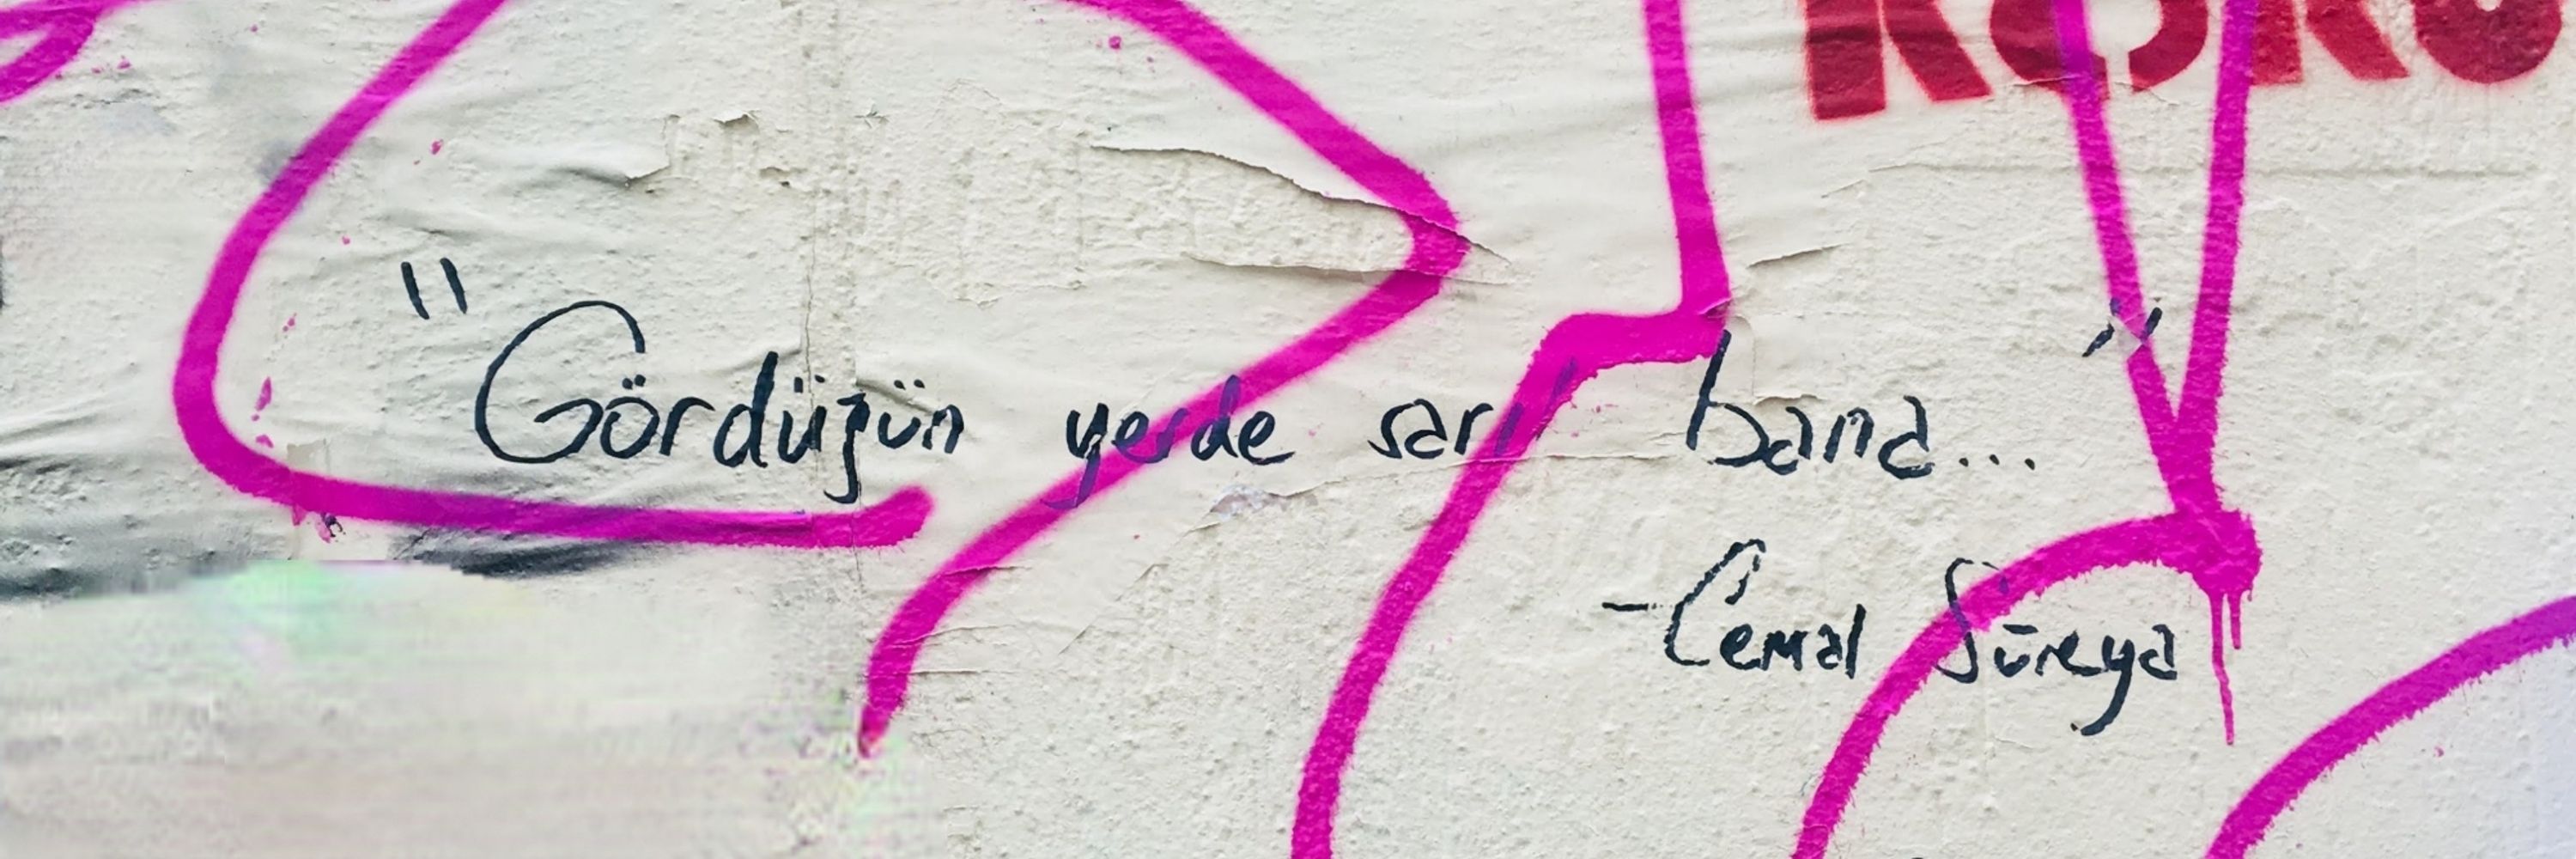 "Gördüğün yerde sarıl bana..."
-Cemal Süreya